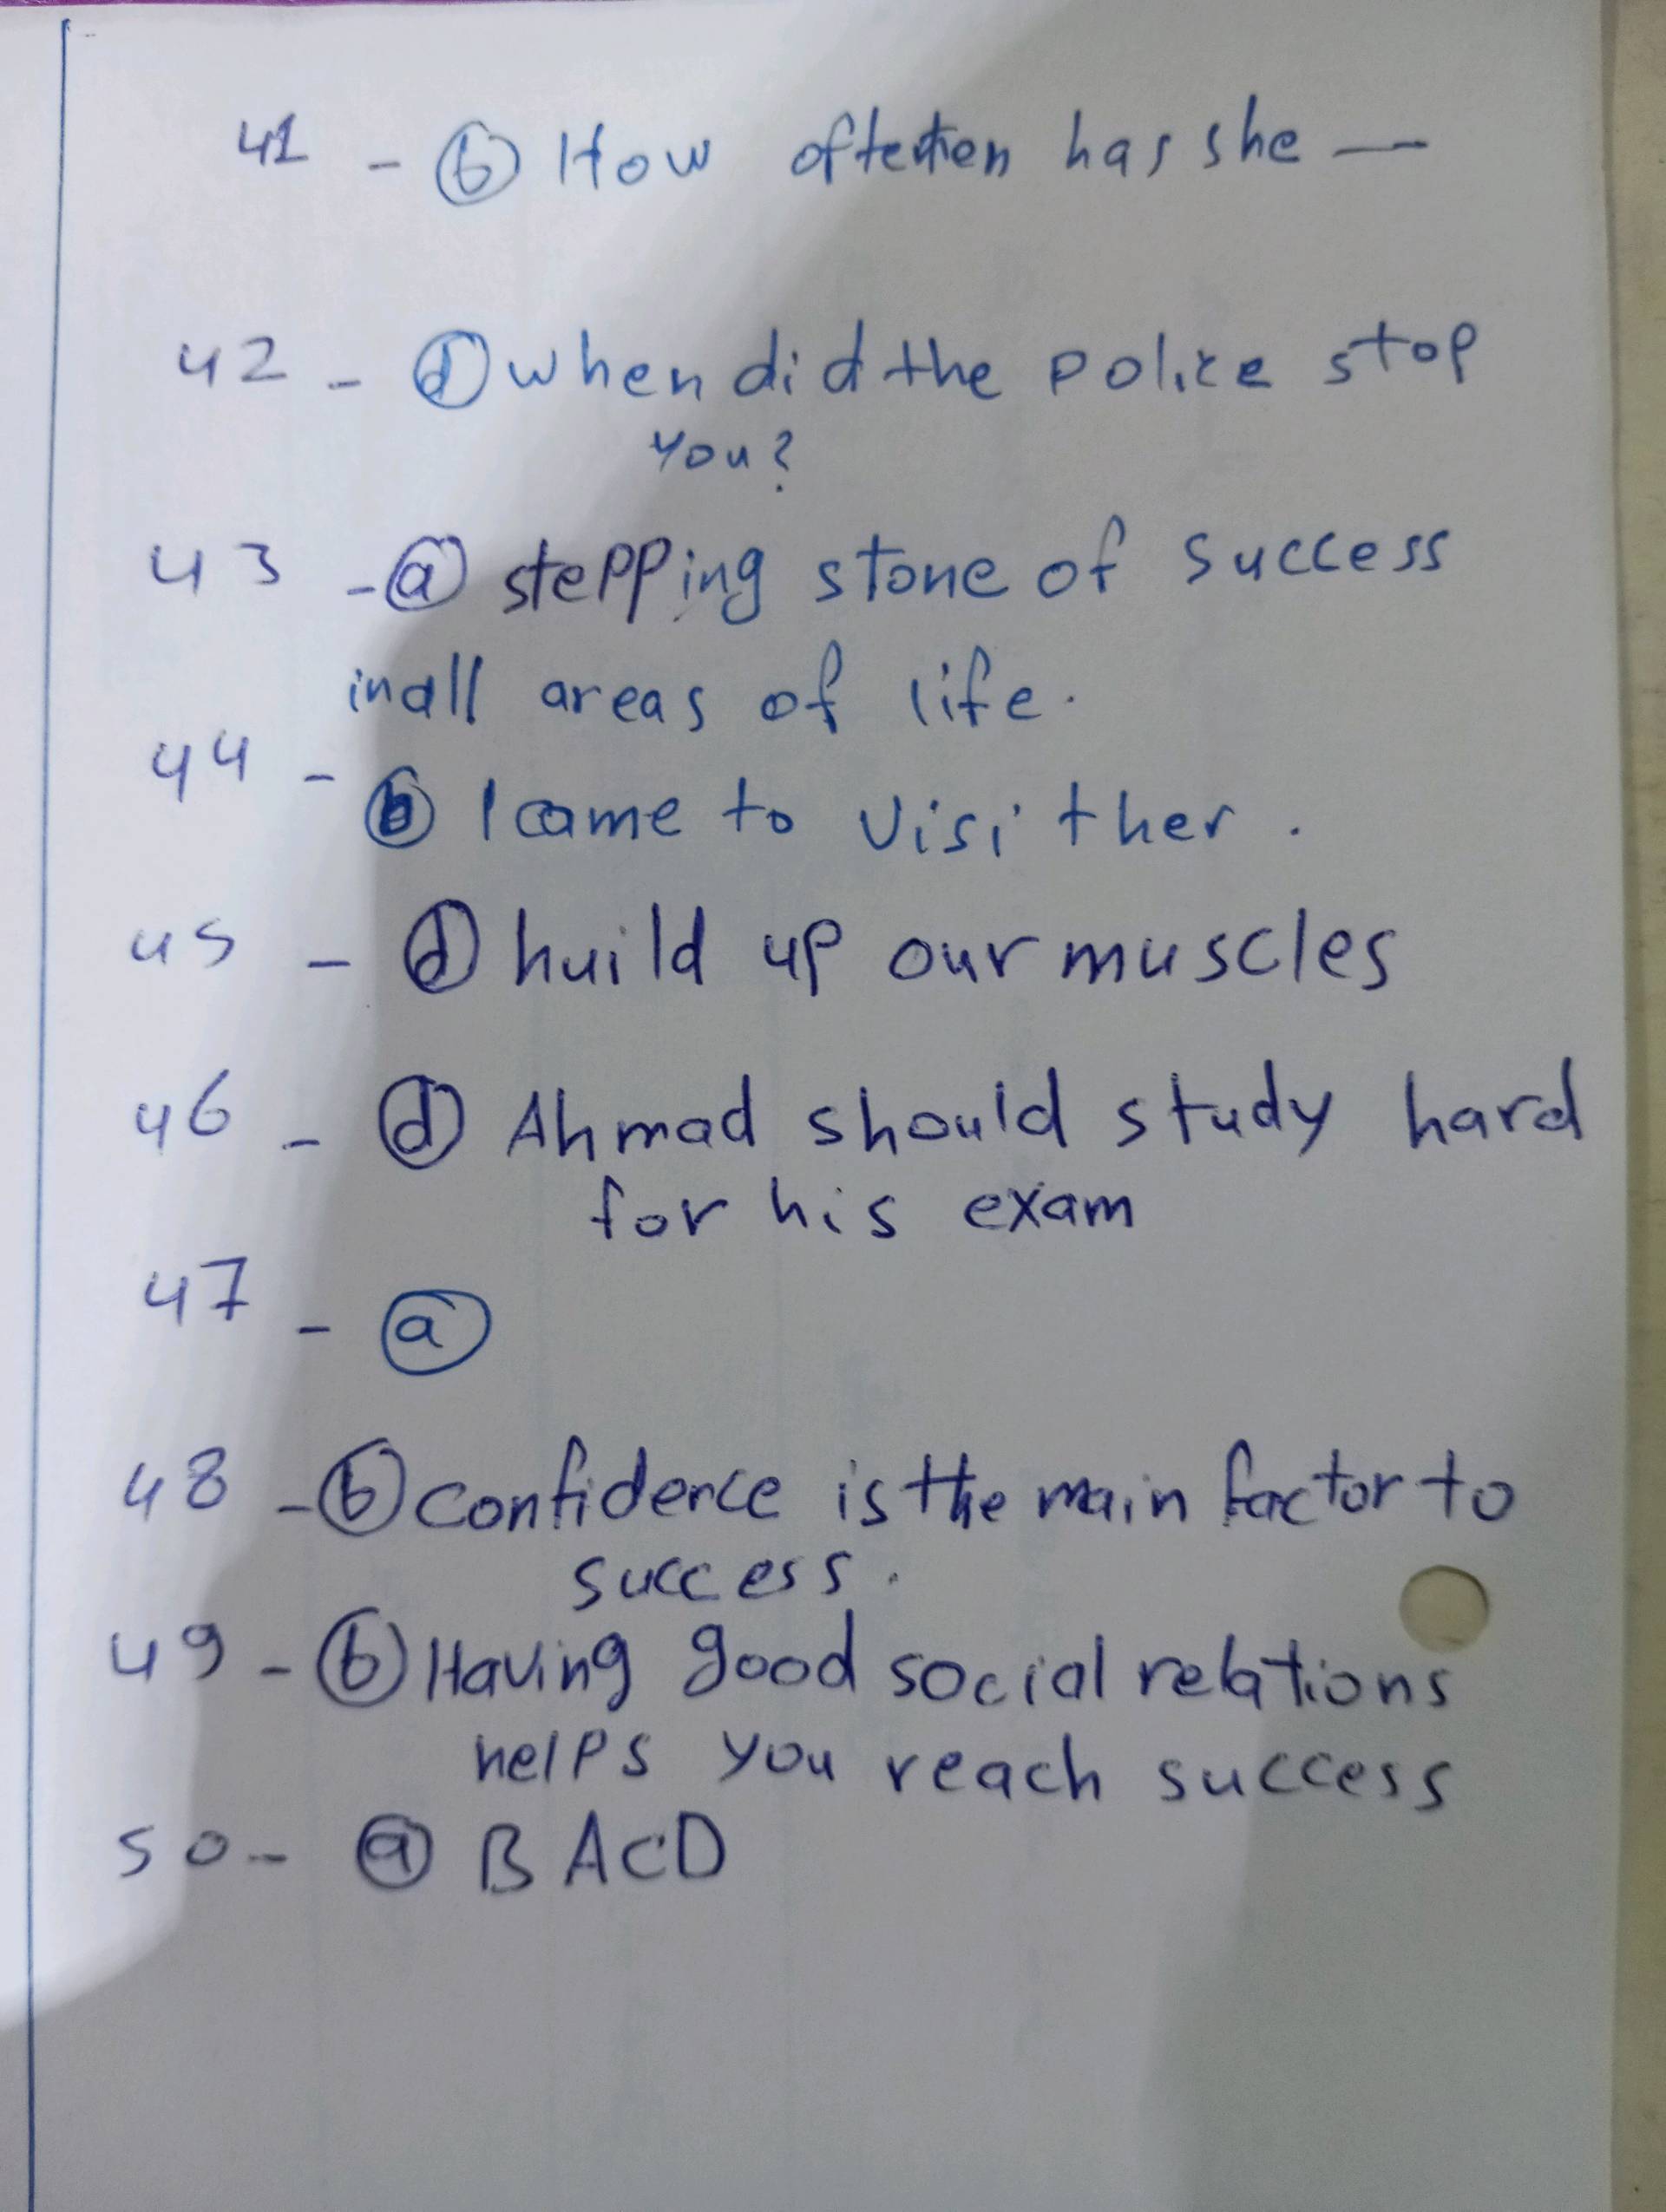 41 - ⓑ How oftenten has she —
42 - ⓓ when did the police stop
you?
43 - ⓐ stepping stone of success
in all areas of life.
44 -
ⓑ I came to visit her.
45 - ⓓ build up our muscles
46 - ⓓ Ahmad should study hard
for his exam
47 - ⓐ
48 - ⓑ confidence is the main factor to
success.
49 - ⓑ Having good social relations
helps you reach success
50 - ⓐ BACD